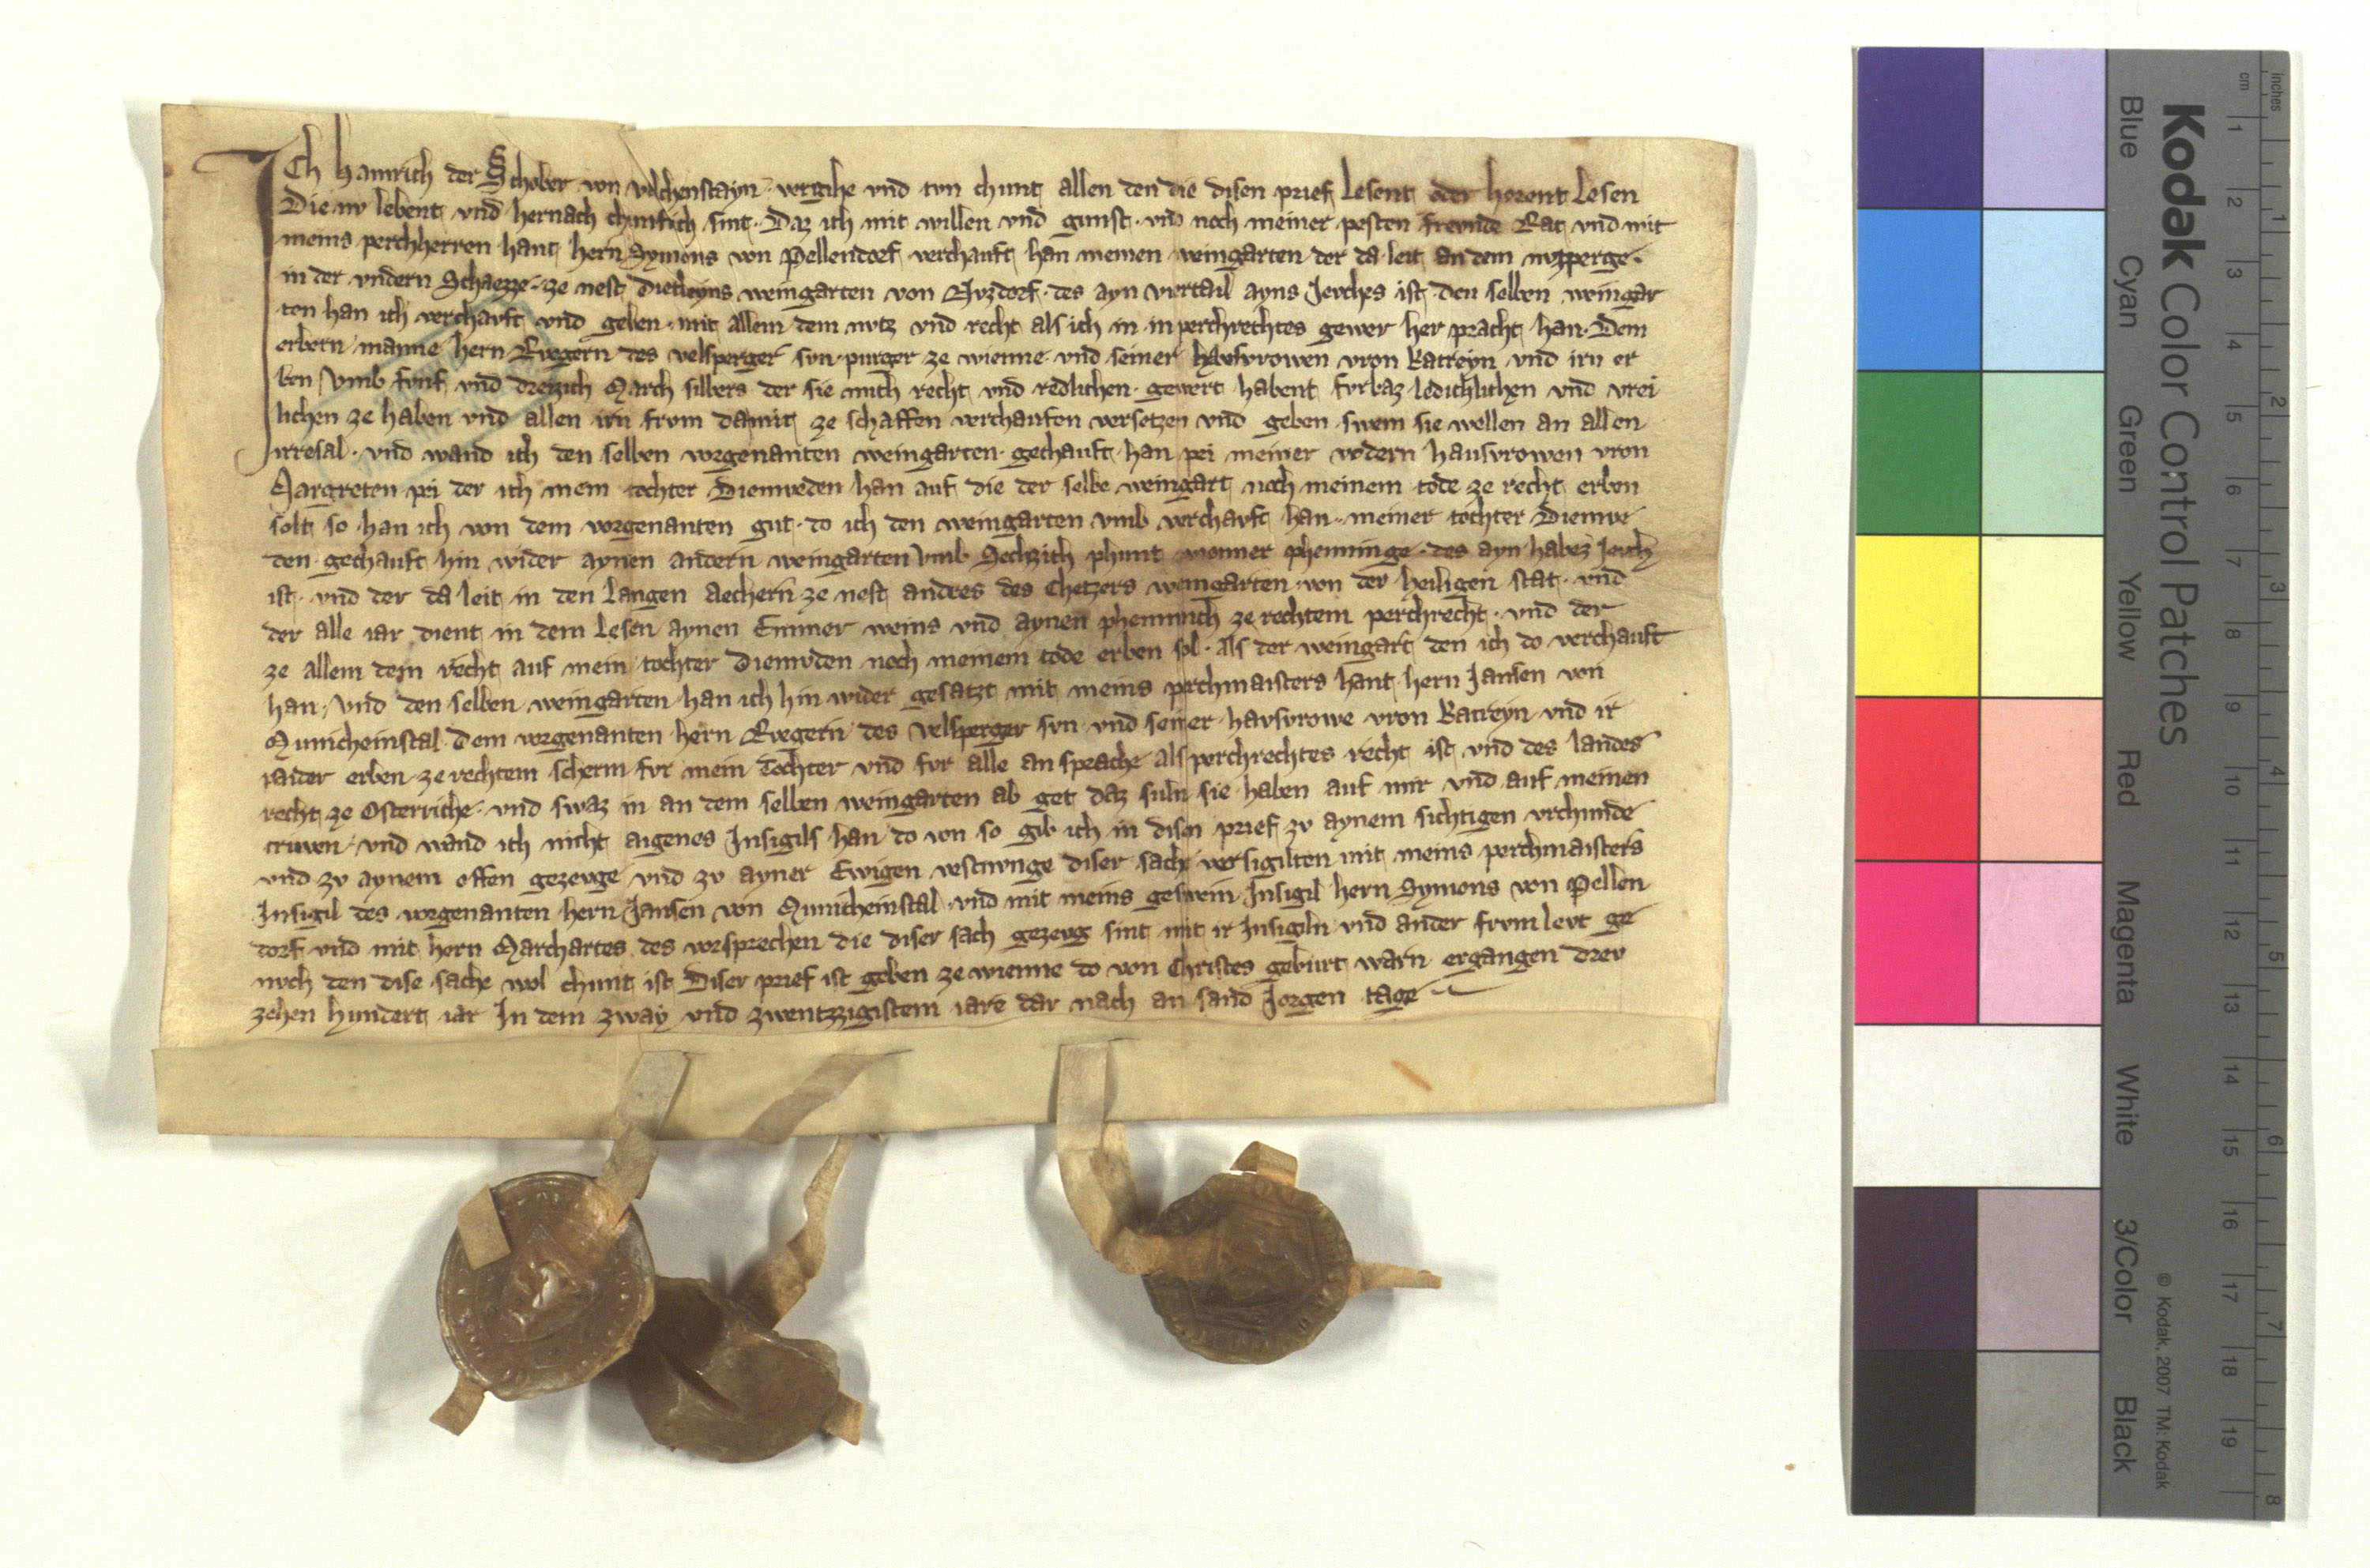 Ich Hainrich der Schober von volchenstayn. vergihe vnd tvn chunt allen den die disen prief Lesent oder horent Lesen
Die nv lebent vnd hernach chunftich sint. Daz ich mit willen vnd gunst. vnd noch meiner pesten frevnde Rat vnd mit
meins perchherren hant hern Symons von Pellendorf verchauft han meinen weingarten der da leit an dem nvzperge.
in der vndern Schaezze. ze nest dietreyns weingarten von Nvzdorf. des ayn viertail ayns Jevches ist. den selben weingar
ten han ich verchavft vnd geben. mit allem dem nvtz vnd recht als ich in in perchrechtes gewer her pracht han. Dem
erbern manne hern Rvegern des velsperger svn. purger ze wienne vnd seiner havsvrowen vron Katreyn vnd irn er
ben Vmb fvnf vnd dreizzich March silbers der sie mich recht vnd redlichen. gewert habent fvrbaz ledichlichen vnd vrei
lichen ze haben vnd allen irn frvm damit ze schaffen verchaufen versetzen vnd geben swem sie wellen an allen
irresal. vnd wand ich den selben vorgenanten weingarten gechauft han pei meiner vodern hausvrowen vron
Margreten pei der ich mein tochter Diemveden han auf die der selbe weingart noch meinem tode ze recht erben
solt so han ich von dem vorgenanten gut. do ich den weingarten vmb verchavft han. meiner tochter Diemve
den gechauft hin wider aynen andern weingarten Vmb Sechzich phunt wienner phenninge. des ayn halbez Jevch
ist. vnd der da leit in den Langen aechern ze nest andres des Chetzers weingarten. von der heiligen stat. vnd
der alle iar dient in dem Lesen aynen Emmer weins vnd aynen phennich ze rechtem perchrecht. vnd der
ze allem dem recht auf mein tochter diemvden noch meinem tode erben sol. als der weingart den ich do verchauft
han. Vnd den selben weingarten han ich hin wider gesatzt mit meins perchmaisters hant hern Jansen von
Municheinstal. dem vorgenanten hern Rvegern des velsperger svn vnd seiner havsvrowe vron Katreyn vnd ir
paider erben ze rechtem scherm fvr mein Tochter vnd fvr alle an sprache als perchrechtes recht ist vnd des landes
recht ze Osterriche. vnd swaz in an dem selben weingarten ab get daz suln sie haben auf mir vnd auf meinen
triwen. vnd wand ich nicht aigenes Insigils han do von so gib ich in disen prief zv aynem sichtigen vrchunde
vnd zv aynem offen gezevge vnd zv ayner Ewigen vestnvnge diser sache versigilten mit meins perchmaisters
Insigil des vorgenanten hern Jansen von Municheinstal. vnd mit meins geswein Insigil hern Symons von Pellen
dorf vnd mit hern Marchartes des vorsprechen die diser sach gezevg sint mit ir Insigiln vnd ander frvm levt ge
nvch den dise sache wol chunt ist Diser prief ist geben ze wienne do von Christes geburt warn ergangen drev
zehen hundert iar In dem zway vnd zwentzzigistem iare dar nach an sand Jorgen tage
Kodak Color Control Patches
Blue Cyan Green Yellow Red Magenta White 3/Color Black
© Kodak, 2007 TM: Kodak
cm 1 2 3 4 5 6 7 8 9 10 11 12 13 14 15 16 17 18 19
inches 1 2 3 4 5 6 7 8